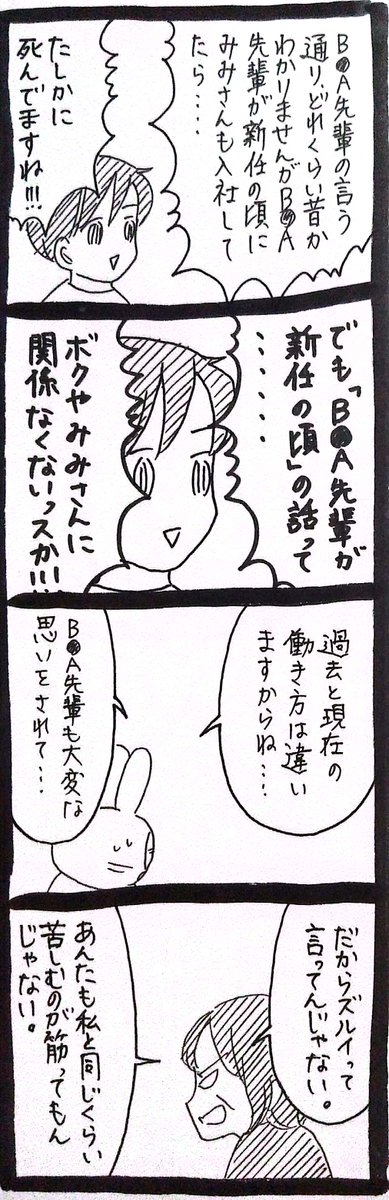 B●A先輩の言う
通り、どれくらい昔か
わかりませんがB●A
先輩が新任の頃に
みみさんも入社して
たら‥‥
たしかに
死んでますね!!!
でも「B●A先輩が
新任の頃」の話って
‥‥‥
ボクやみみさんに
関係なくないっスか!!!
過去と現在の
働き方は違い
ますからね‥‥
B●A先輩も大変な
思いをされて‥‥
だからズルイって
言ってんじゃない。
あんたも私と同じくらい
苦しむのが筋ってもん
じゃない。